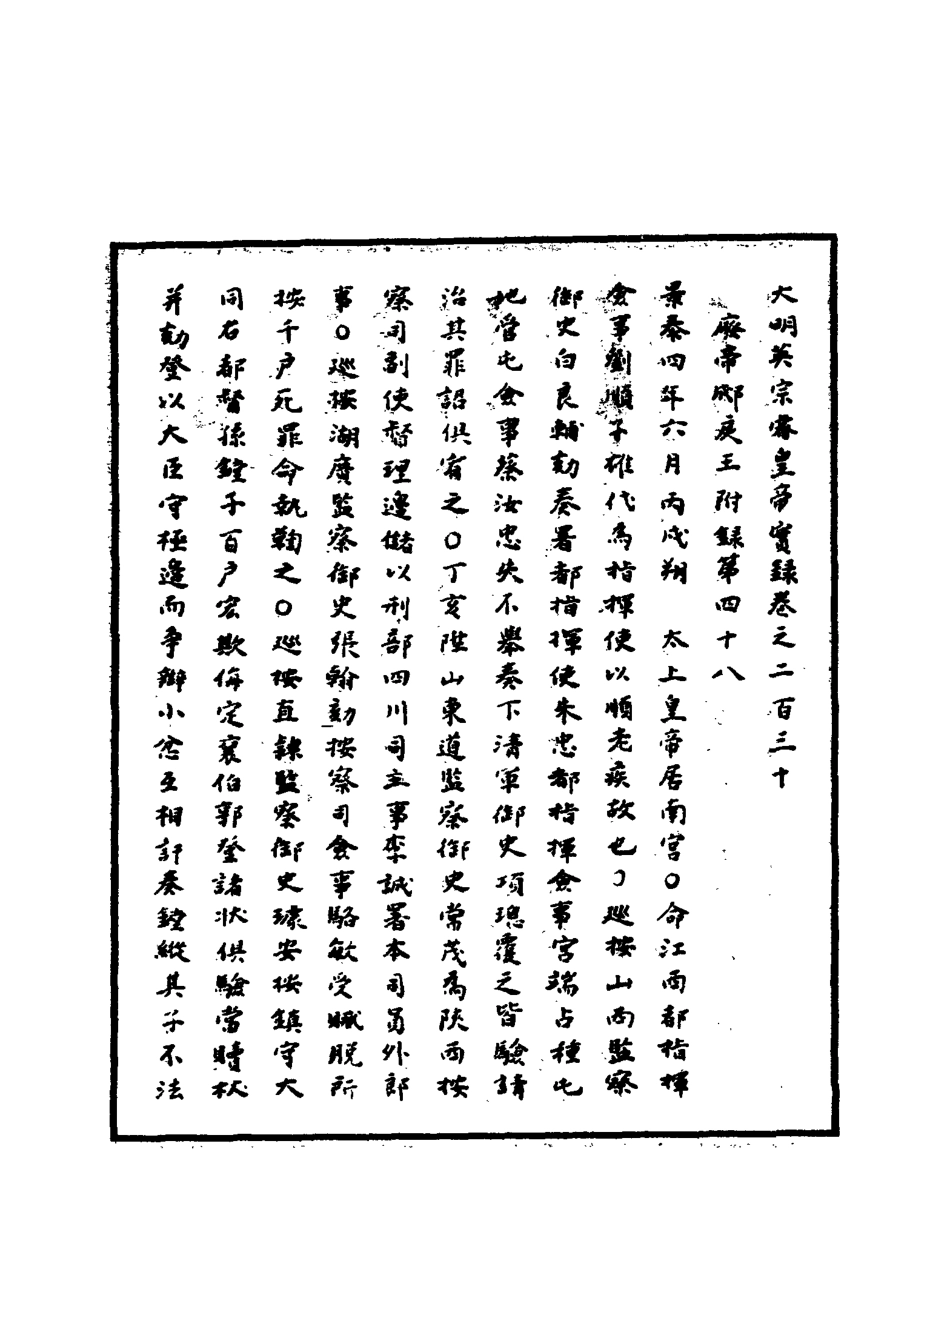 大明英宗睿皇帝實録巻之二百三十
廢帝郕戾王附録第四十八
景泰四年六月丙戌朔　太上皇帝居南宮○命江西都指揮
僉事劉順子雄代為指揮使以順老疾故也○廵按山西監察
御史白良輔劾奏署都指揮使朱忠都指揮僉事宮端占種屯
地管屯僉事蔡汝忠失不舉奏下清軍御史項璁覆之皆驗請
治其罪詔俱宥之○丁亥陞山東道監察御史常茂為陝西按
察司副使督理邊儲以刑部四川司主事李誠署本司員外郎
事○廵按湖廣監察御史張翰劾按察司僉事駱敏受贓脱所
按千户死罪命執鞫之○廵按直隷監察御史練安按鎮守大
同右都督孫鏜子百户宏欺侮定襄伯郭登諸状俱驗當贖杖
并劾登以大臣守極邊而爭辯小忿互相訐奏鏜縱其子不法